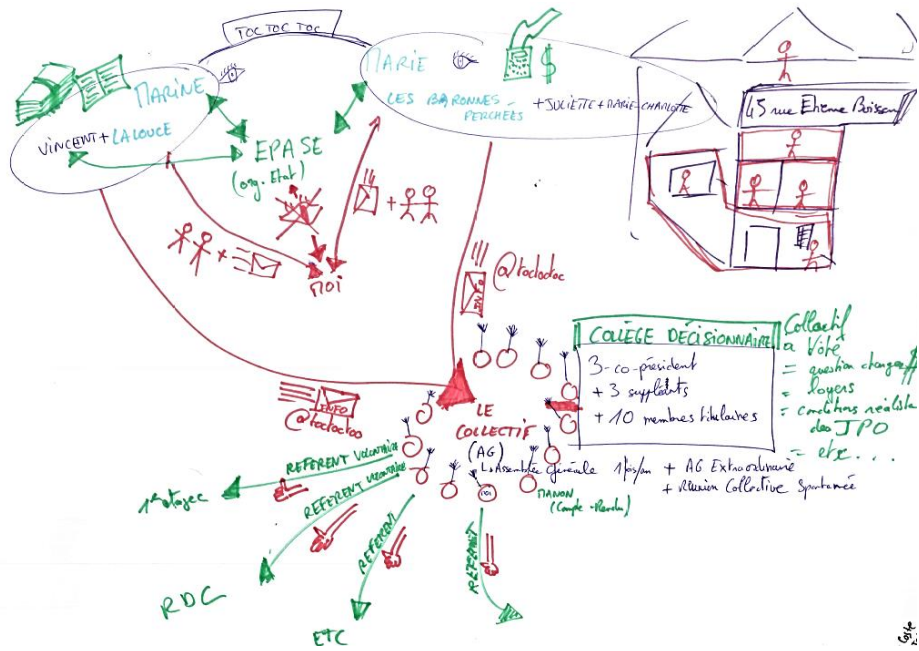 TOC TOC TOC
MARINE
VINCENT + LALOUCE
MARIE
$
LES BARONNES
PERCHÉES
+ JULIETTE + MARIE-CHARLOTTE
45 rue Etienne
EPASE
(org. Etat)
+
+
MOI
INFO
@toctoctoc
INFO
@toctoctoc
COLLÈGE DÉCISIONNAIRE
3-co-président
+ 3 suppléants
+ 10 membres titulaires
Collectif
a Voté
= question charges
= loyers
= conditions réalistes
des JPO
= etc...
LE
COLLECTIF
(AG)
L'Assemblée Générale 1 fois/an + AG Extraordinaire
+ Réunion Collective Spontanée
MANON
(Compte-Rendu)
MOI
REFERENT VOLONTAIRE
1er etage
REFERENT VOLONTAIRE
RDC
REFERENT
ETC
REFERENT